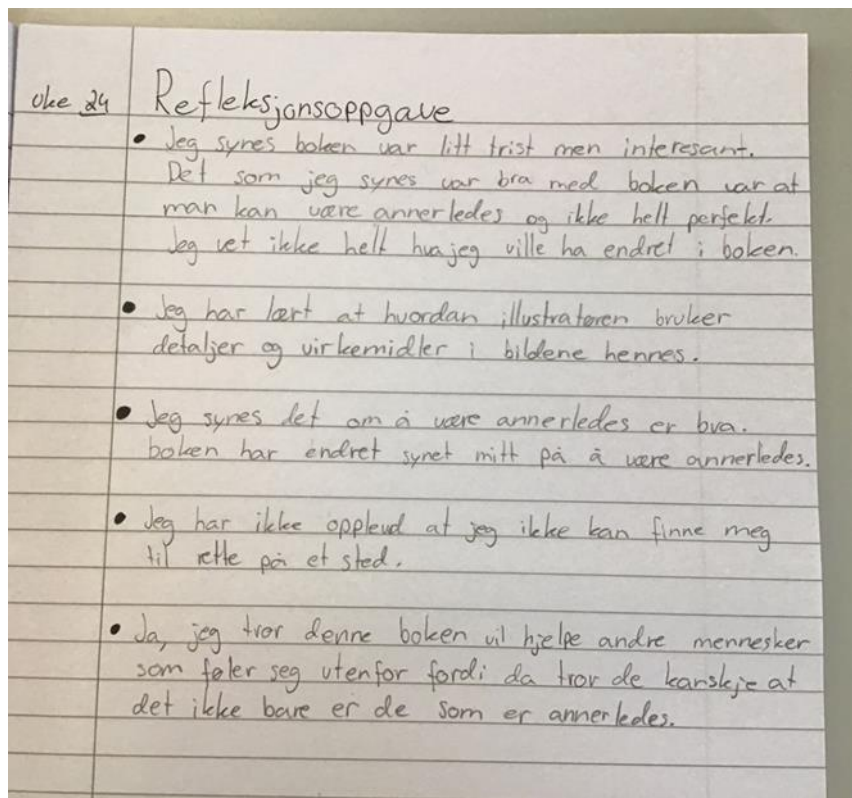 Uke 24
Refleksjonsoppgave
• Jeg synes boken var litt trist men interesant.
Det som jeg synes var bra med boken var at
man kan være annerledes og ikke helt perfekt.
Jeg vet ikke helt hva jeg ville ha endret i boken.
• Jeg har lært at hvordan illustratøren bruker
detaljer og virkemidler i bildene hennes.
• Jeg synes det om å være annerledes er bra.
boken har endret synet mitt på å være annerledes.
• Jeg har ikke opplevd at jeg ikke kan finne meg
til rette på et sted.
• Ja, jeg tror denne boken vil hjelpe andre mennesker
som føler seg utenfor fordi da tror de kanskje at
det ikke bare er de som er annerledes.